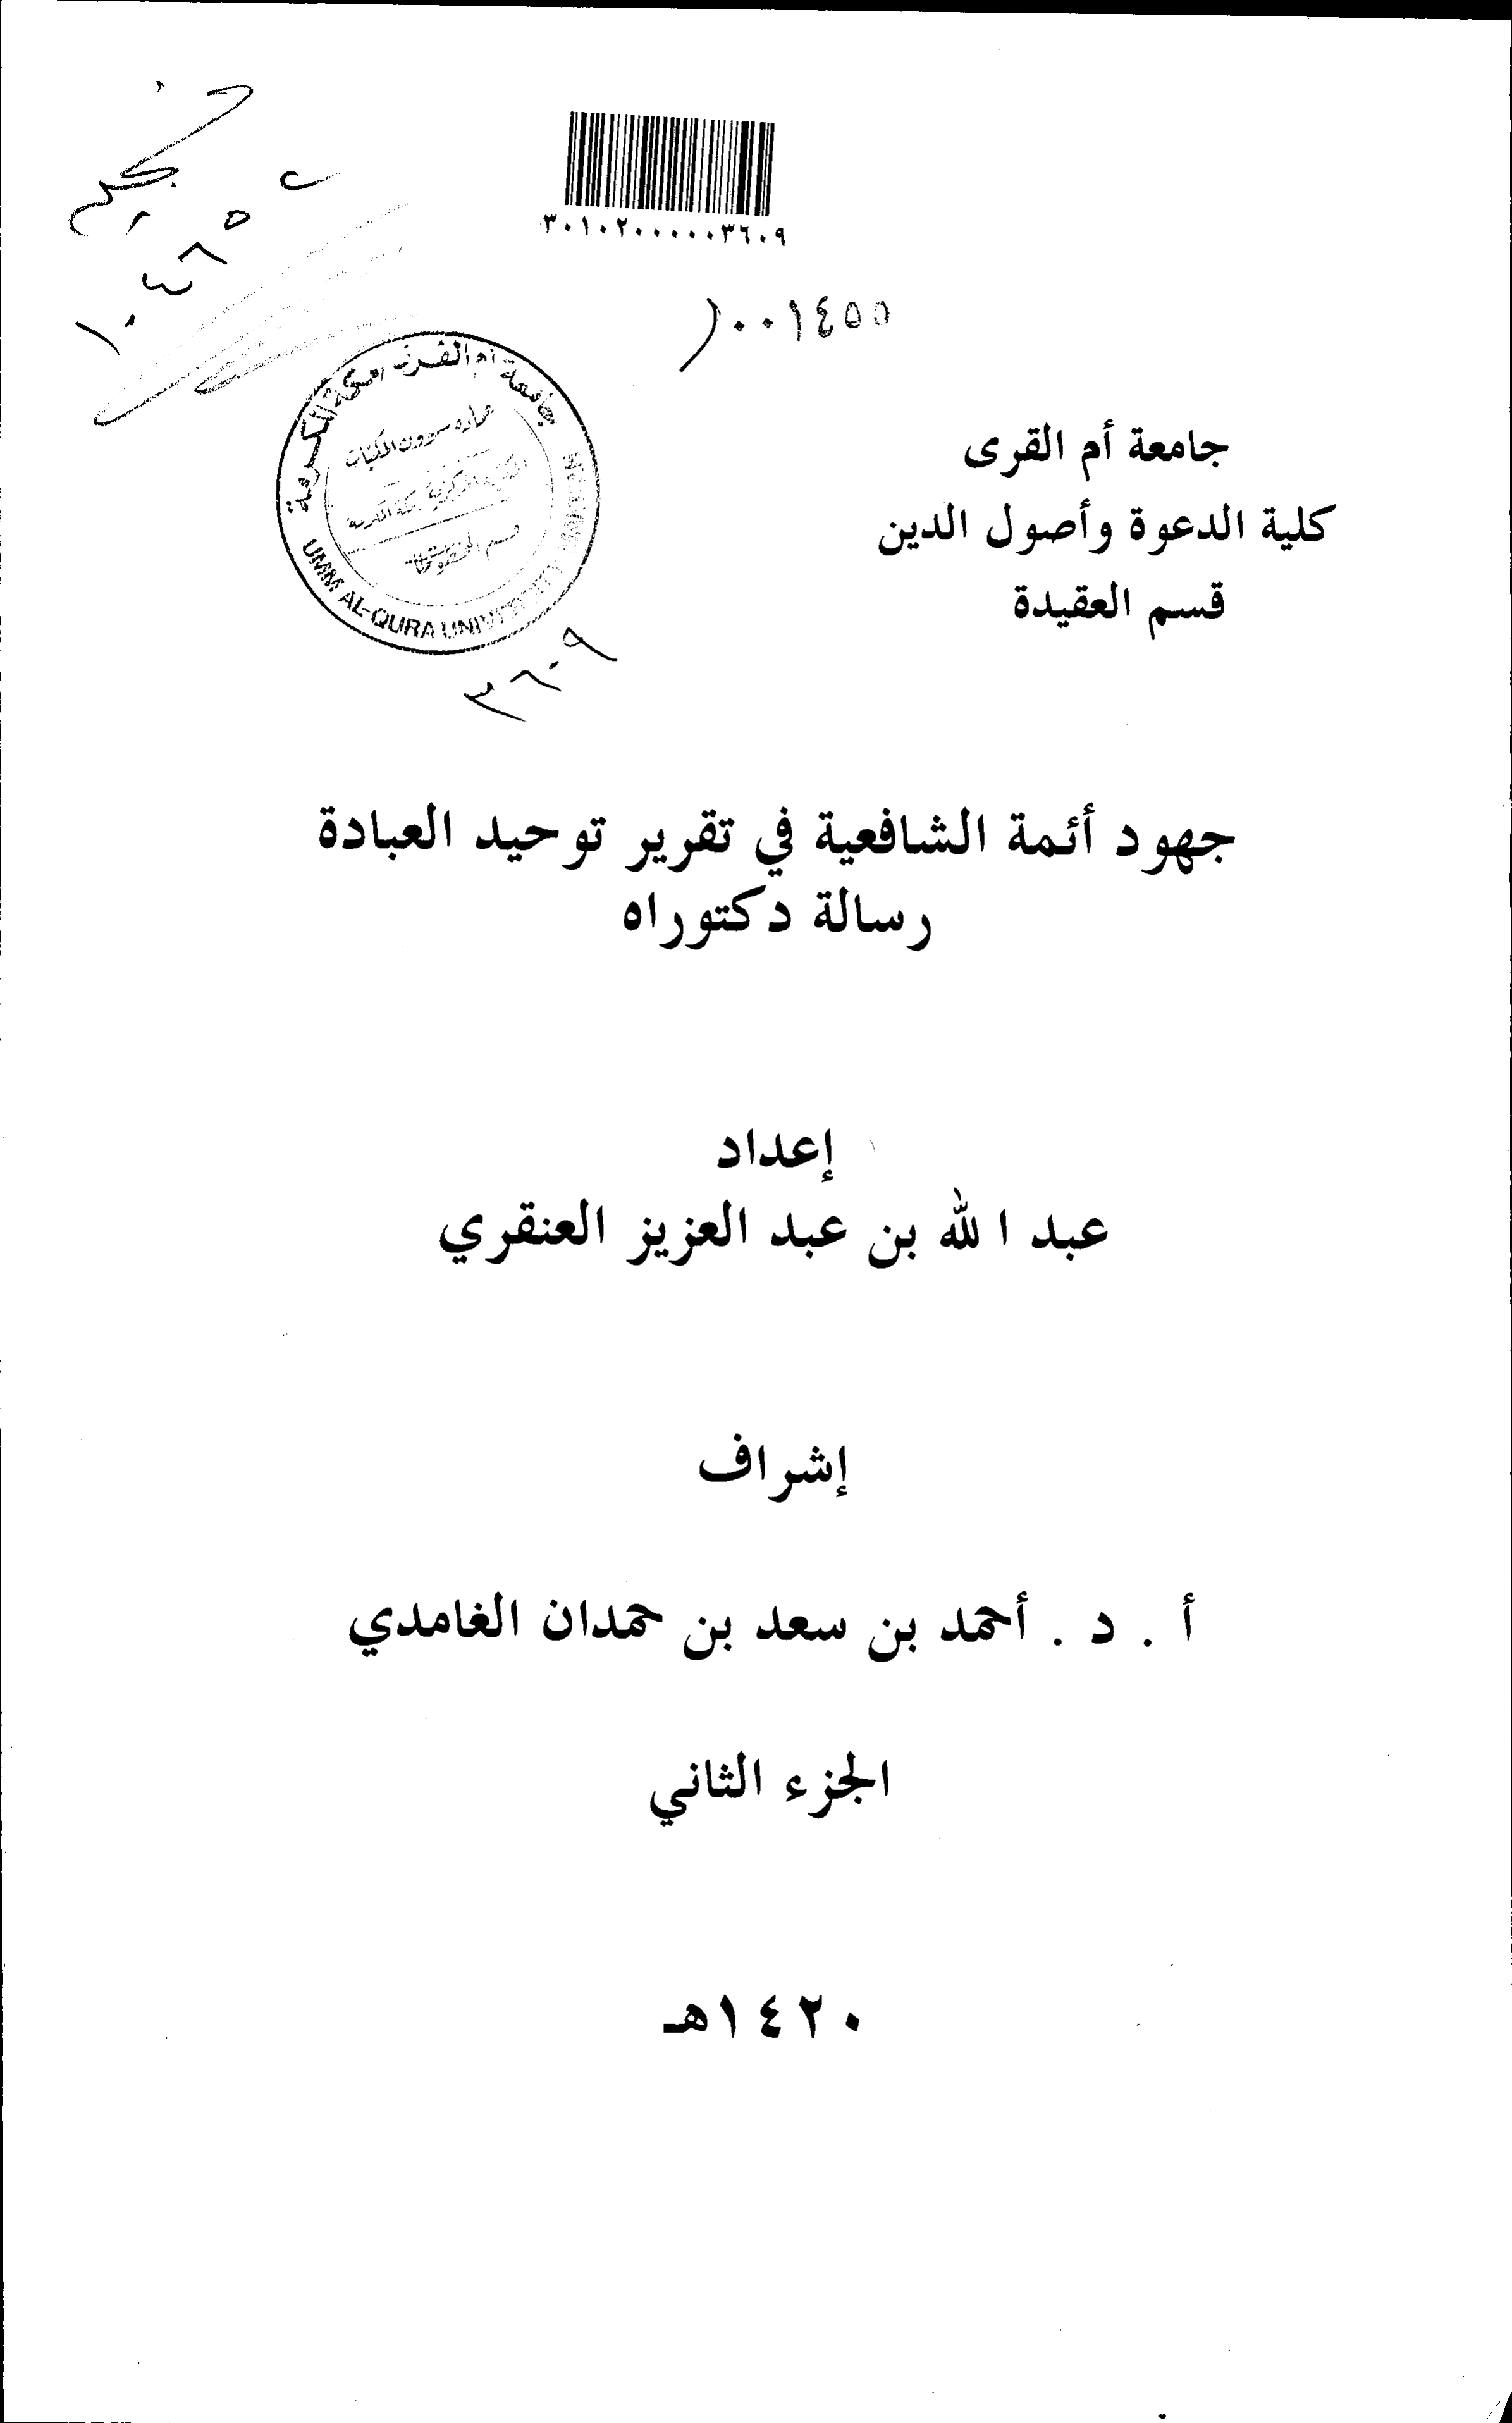 ٣٠١٠٢٠٠٠٠٠٣٦٠٩
٠٠١٤٥٥
جامعة أم القرى مكة المكرمة
عمادة شؤون المكتبات
UMM AL-QURA
٣٦٠٩
جامعة أم القرى
كلية الدعوة وأصول الدين
قسم العقيدة
جهود أئمة الشافعية في تقرير توحيد العبادة
رسالة دكتوراه
إعداد
عبد الله بن عبد العزيز العنقري
إشراف
أ . د . أحمد بن سعد بن حمدان الغامدي
الجزء الثاني
١٤٢٠هـ